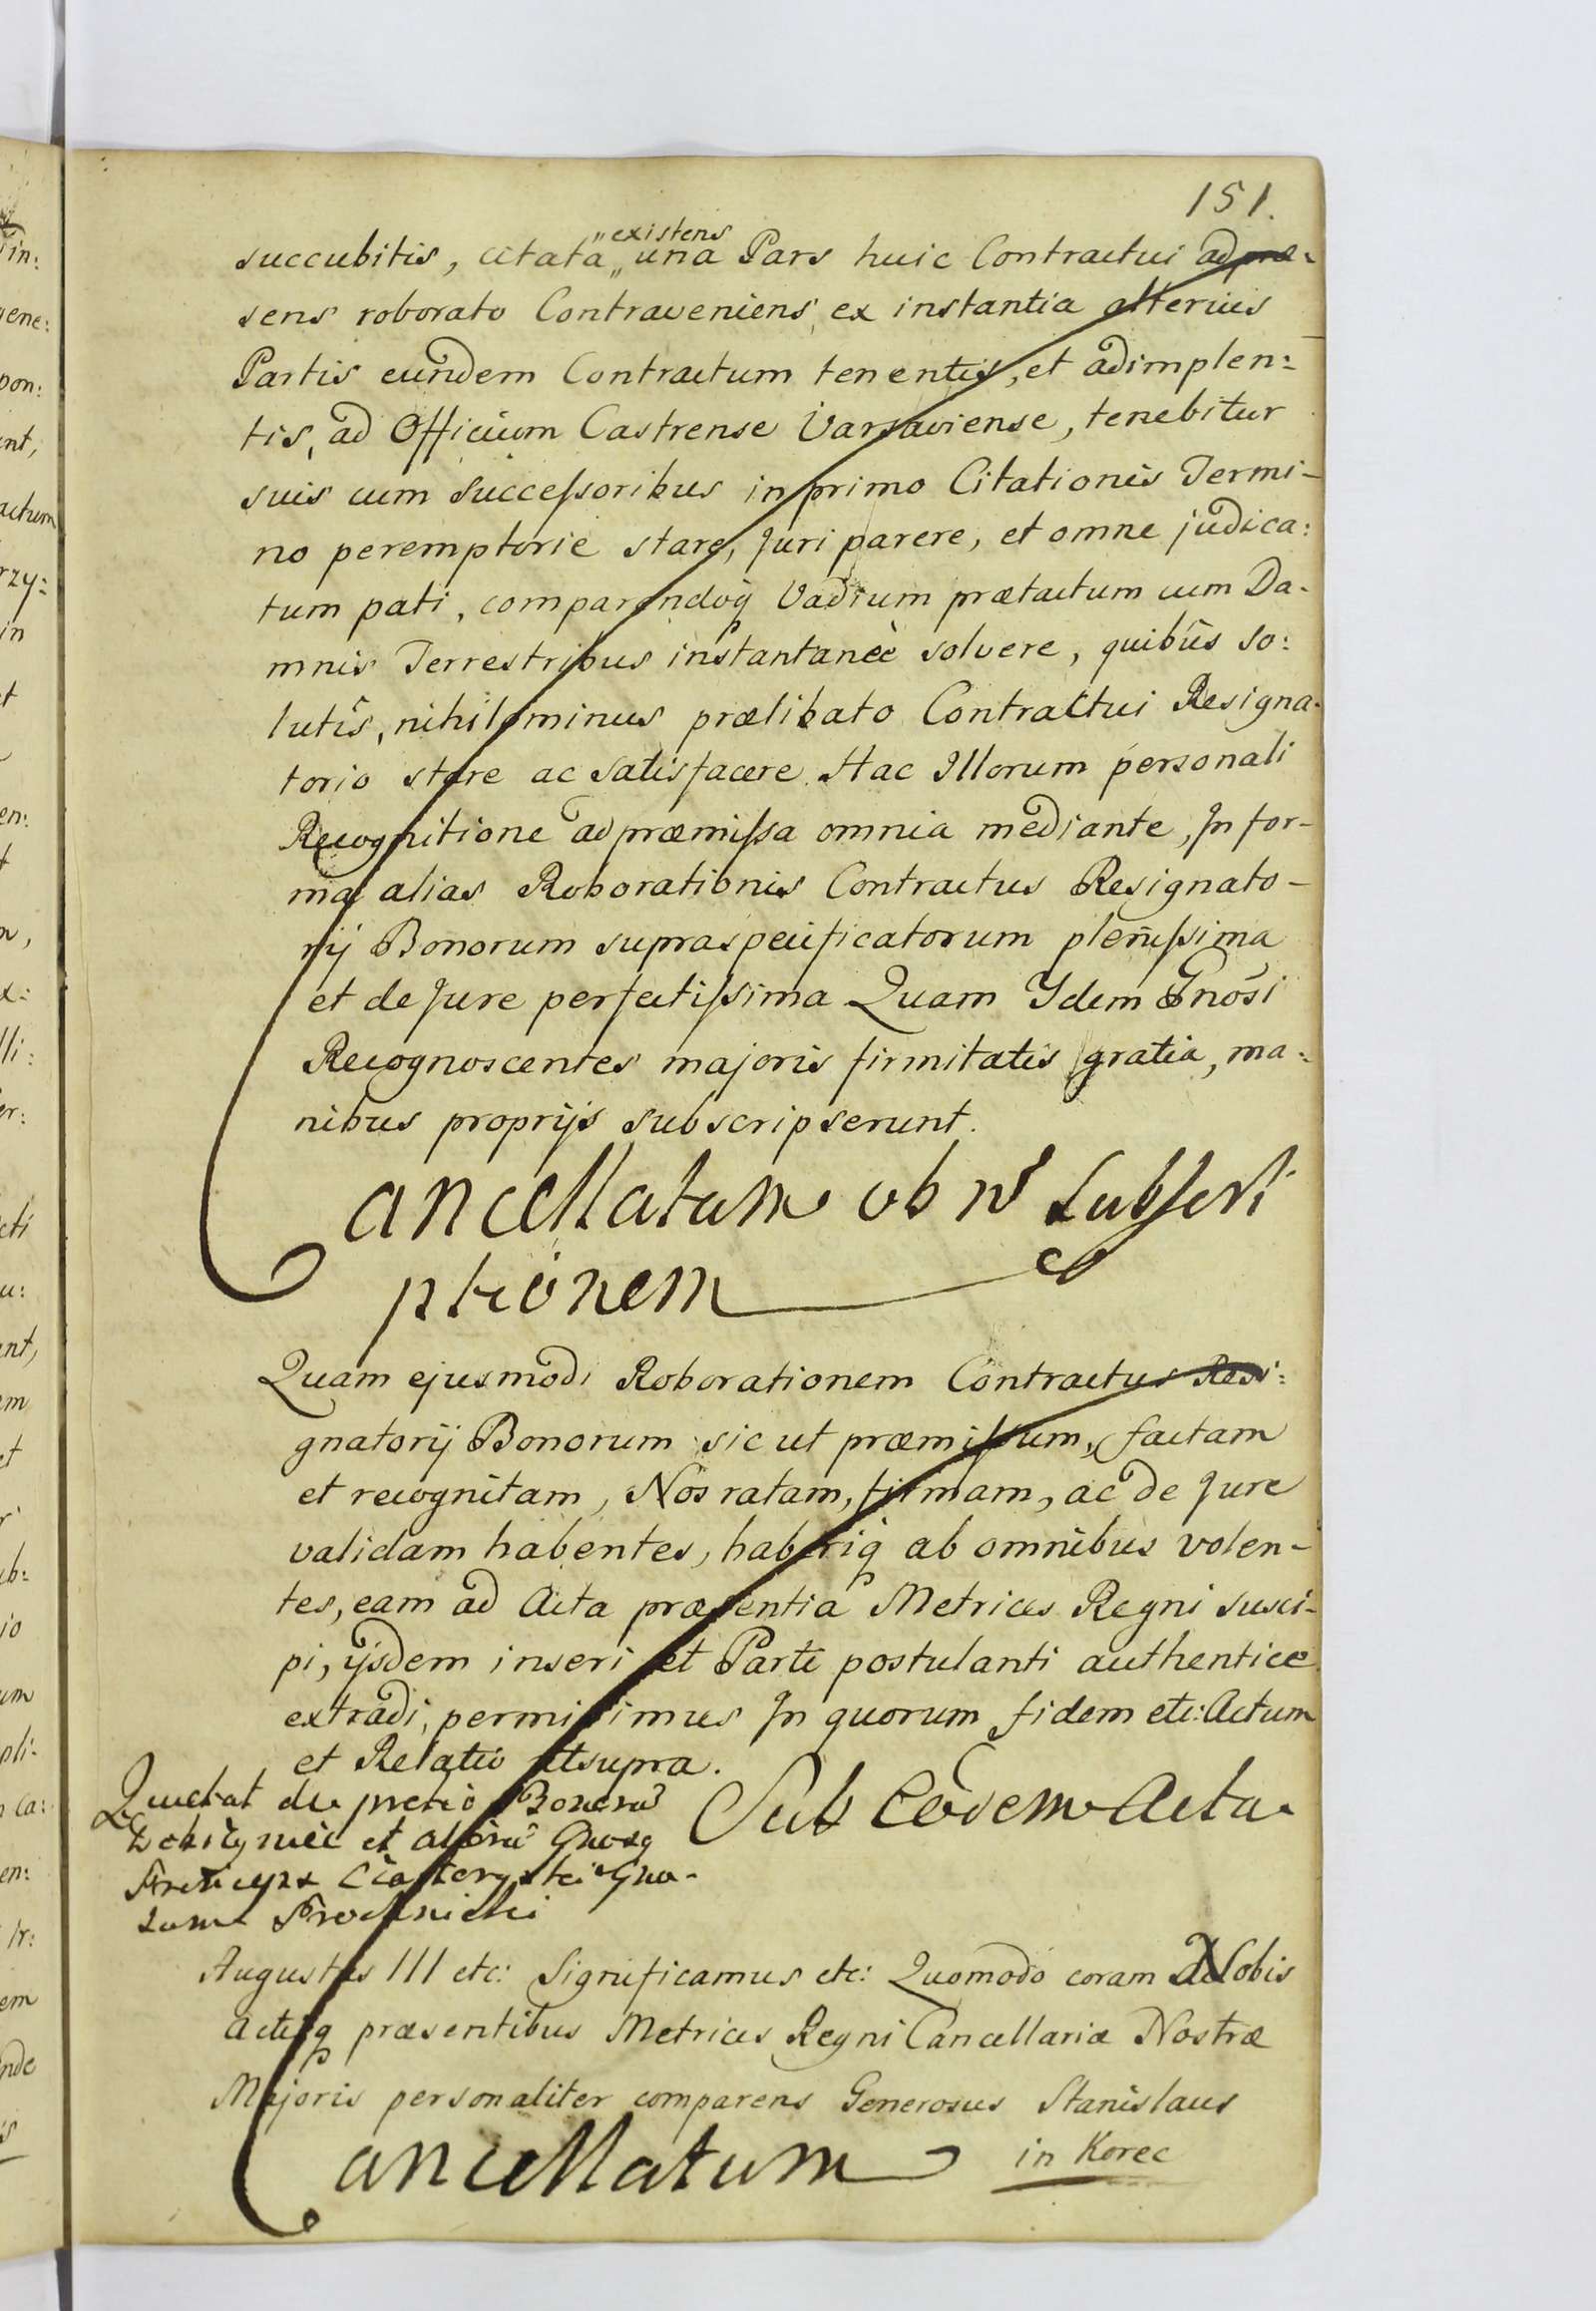 151.
succubitis, citata „existens„ una Pars huic Contractui ad præ-
sens roborato Contraveniens, ex instantia alterius
Partis eundem Contractum tenentis, et adimplen:
tis, ad Officium Castrense Varsaviense, tenebitur
suis cum Successoribus in primo Citationis Termi-
no peremptorie stare, Juri parere, et omne judica:
tum pati, comparendoq̀ Vadium prætactum cum Da-
mnis Terrestribus instantaneè solvere, quibus so:
lutis, nihilominus prælibato Contractui Resigna-
torio stare ac satisfacere. Hac Illorum personali
Recognitione ad præmissa omnia mediante, In for-
ma alias Roborationis Contractus Resignato-
rij Bonorum supraspecificatorum plenissima
et de Jure perfectissima Quam Ydem Gnosi
Recognoscentes majoris firmitatis gratia, ma:
nibus proprijs subscripserunt.
Cancellatum ob n̄ Subscri
ptionem
Quam ejusmodi Roborationem Contractus Resi:
gnatorij Bonorum sic ut præmissum, factam
et recognitam, Nos ratam, firmam, ac de Jure
validam habentes, haberiq̀ ab omnibus volen-
tes, eam ad Acta præsentia Metrices Regni susci-
pi, ijsdem inseri et Parti postulanti authentice
extradi, permisimus In quorum fidem etc: Actum
et Relatio utsupra.
Quietat de pretio Bonorū
et aliorū Gnosq
Gno-
Sub Eodem Actu
Augustus III etc: Significamus etc: Quomodo coram Nobis
Actisq̀ præsentibus Metrices Regni Cancellariæ Nostræ
Majoris personaliter comparens Generosus Stanislaus
in Korec
Cancellatum